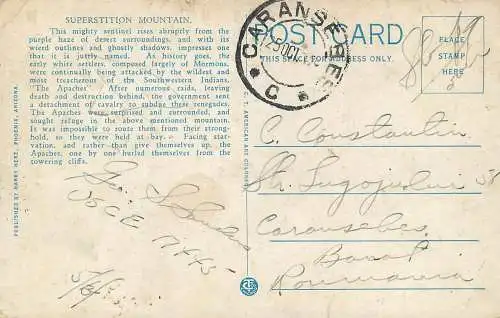 SUPERSTITION MOUNTAIN.
This mighty sentinel rises abruptly from the
purple haze of desert surroundings, and with its
wierd outlines and ghostly shadows, impresses one
that it is justly named. As history goes, the
early white settlers, composed largely of Mormons,
were continually being attacked by the wildest and
most treacherous of the Southwestern Indians,
"The Apaches". After numerous raids, leaving
death and destruction behind, the government sent
a detachment of cavalry to subdue these renegades.
The Apaches were surprised and surrounded, and
sought refuge in the above mentioned mountain.
It was impossible to route them from their strong-
hold, so they were held at bay. Facing star-
vation, and rather than give themselves up, the
Apaches, one by one hurled themselves from the
towering cliffs.
PUBLISHED BY HARRY HERZ, PHOENIX, ARIZONA.
C. T. AMERICAN ART COLORED
POST CARD
THIS SPACE FOR ADDRESS ONLY.
PLACE
STAMP
HERE
CARANSEBEȘ
C
C. Constantin
Str.
Caransebes
Banat
Roumania